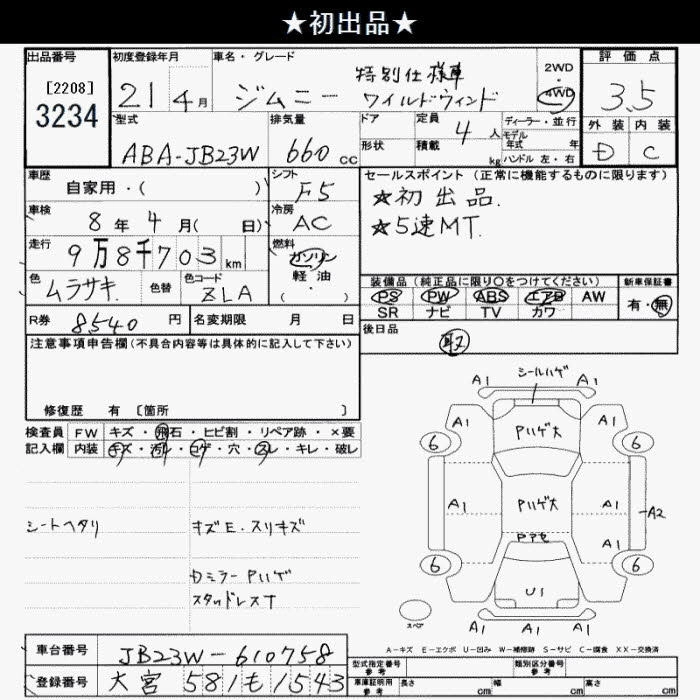 ★初出品★
出品番号
[2208]
3234
初度登録年月
21 4月
車名・グレード
特別仕様車
ジムニー ワイルドウィンド
2WD
・
4WD
評価点
3.5
外装 内装
D C
型式
ABA-JB23W
排気量
660 cc
ドア
形状
定員
4 人
積載 kg
ディーラー・並行
モデル
年式 年
ハンドル 左・右
車歴
自家用・( )
シフト
F5
車検
8年 4月( 日)
冷房
AC
走行
9万8千703 km
燃料
ガソリン
軽・油
( ・ )
色
ムラサキ 色替
色コード
ZLA
R券
8540 円
名変期限 月 日
セールスポイント (正常に機能するものに限ります)
★初出品.
★5速MT.
装備品 (純正品に限り○をつけてください)
PS PW ABS エアB AW
SR ナビ TV カワ
新車保証書
有・無
後日品
取
注意事項申告欄(不具合内容等は具体的に記入して下さい)
修復歴 有 [箇所 ]
検査員
記入欄
FW キズ・飛石・ヒビ割・リペア跡・×要
内装 キズ・汚レ・コゲ・穴・スレ・キレ・破レ
シートヘタリ
キズE.スリキズ
Dミラー Pハゲ
スタッドレスT
シールハゲ
A1 A1
A1 Pハゲ大 A1
6 6
A1 Pハゲ大 A1
A2
Pアセ A1
6 6
U1
A1 A1 A1
スペア
A-キズ E-エクボ U-凹み W-補修跡 S-サビ C-腐食 XX-交換済
車台番号
JB23W-610758
登録番号
大宮 581 も 1543
型式指定番号
参考
類別区分番号
参考
車庫証明用
参考
長さ cm 幅 cm 高さ cm